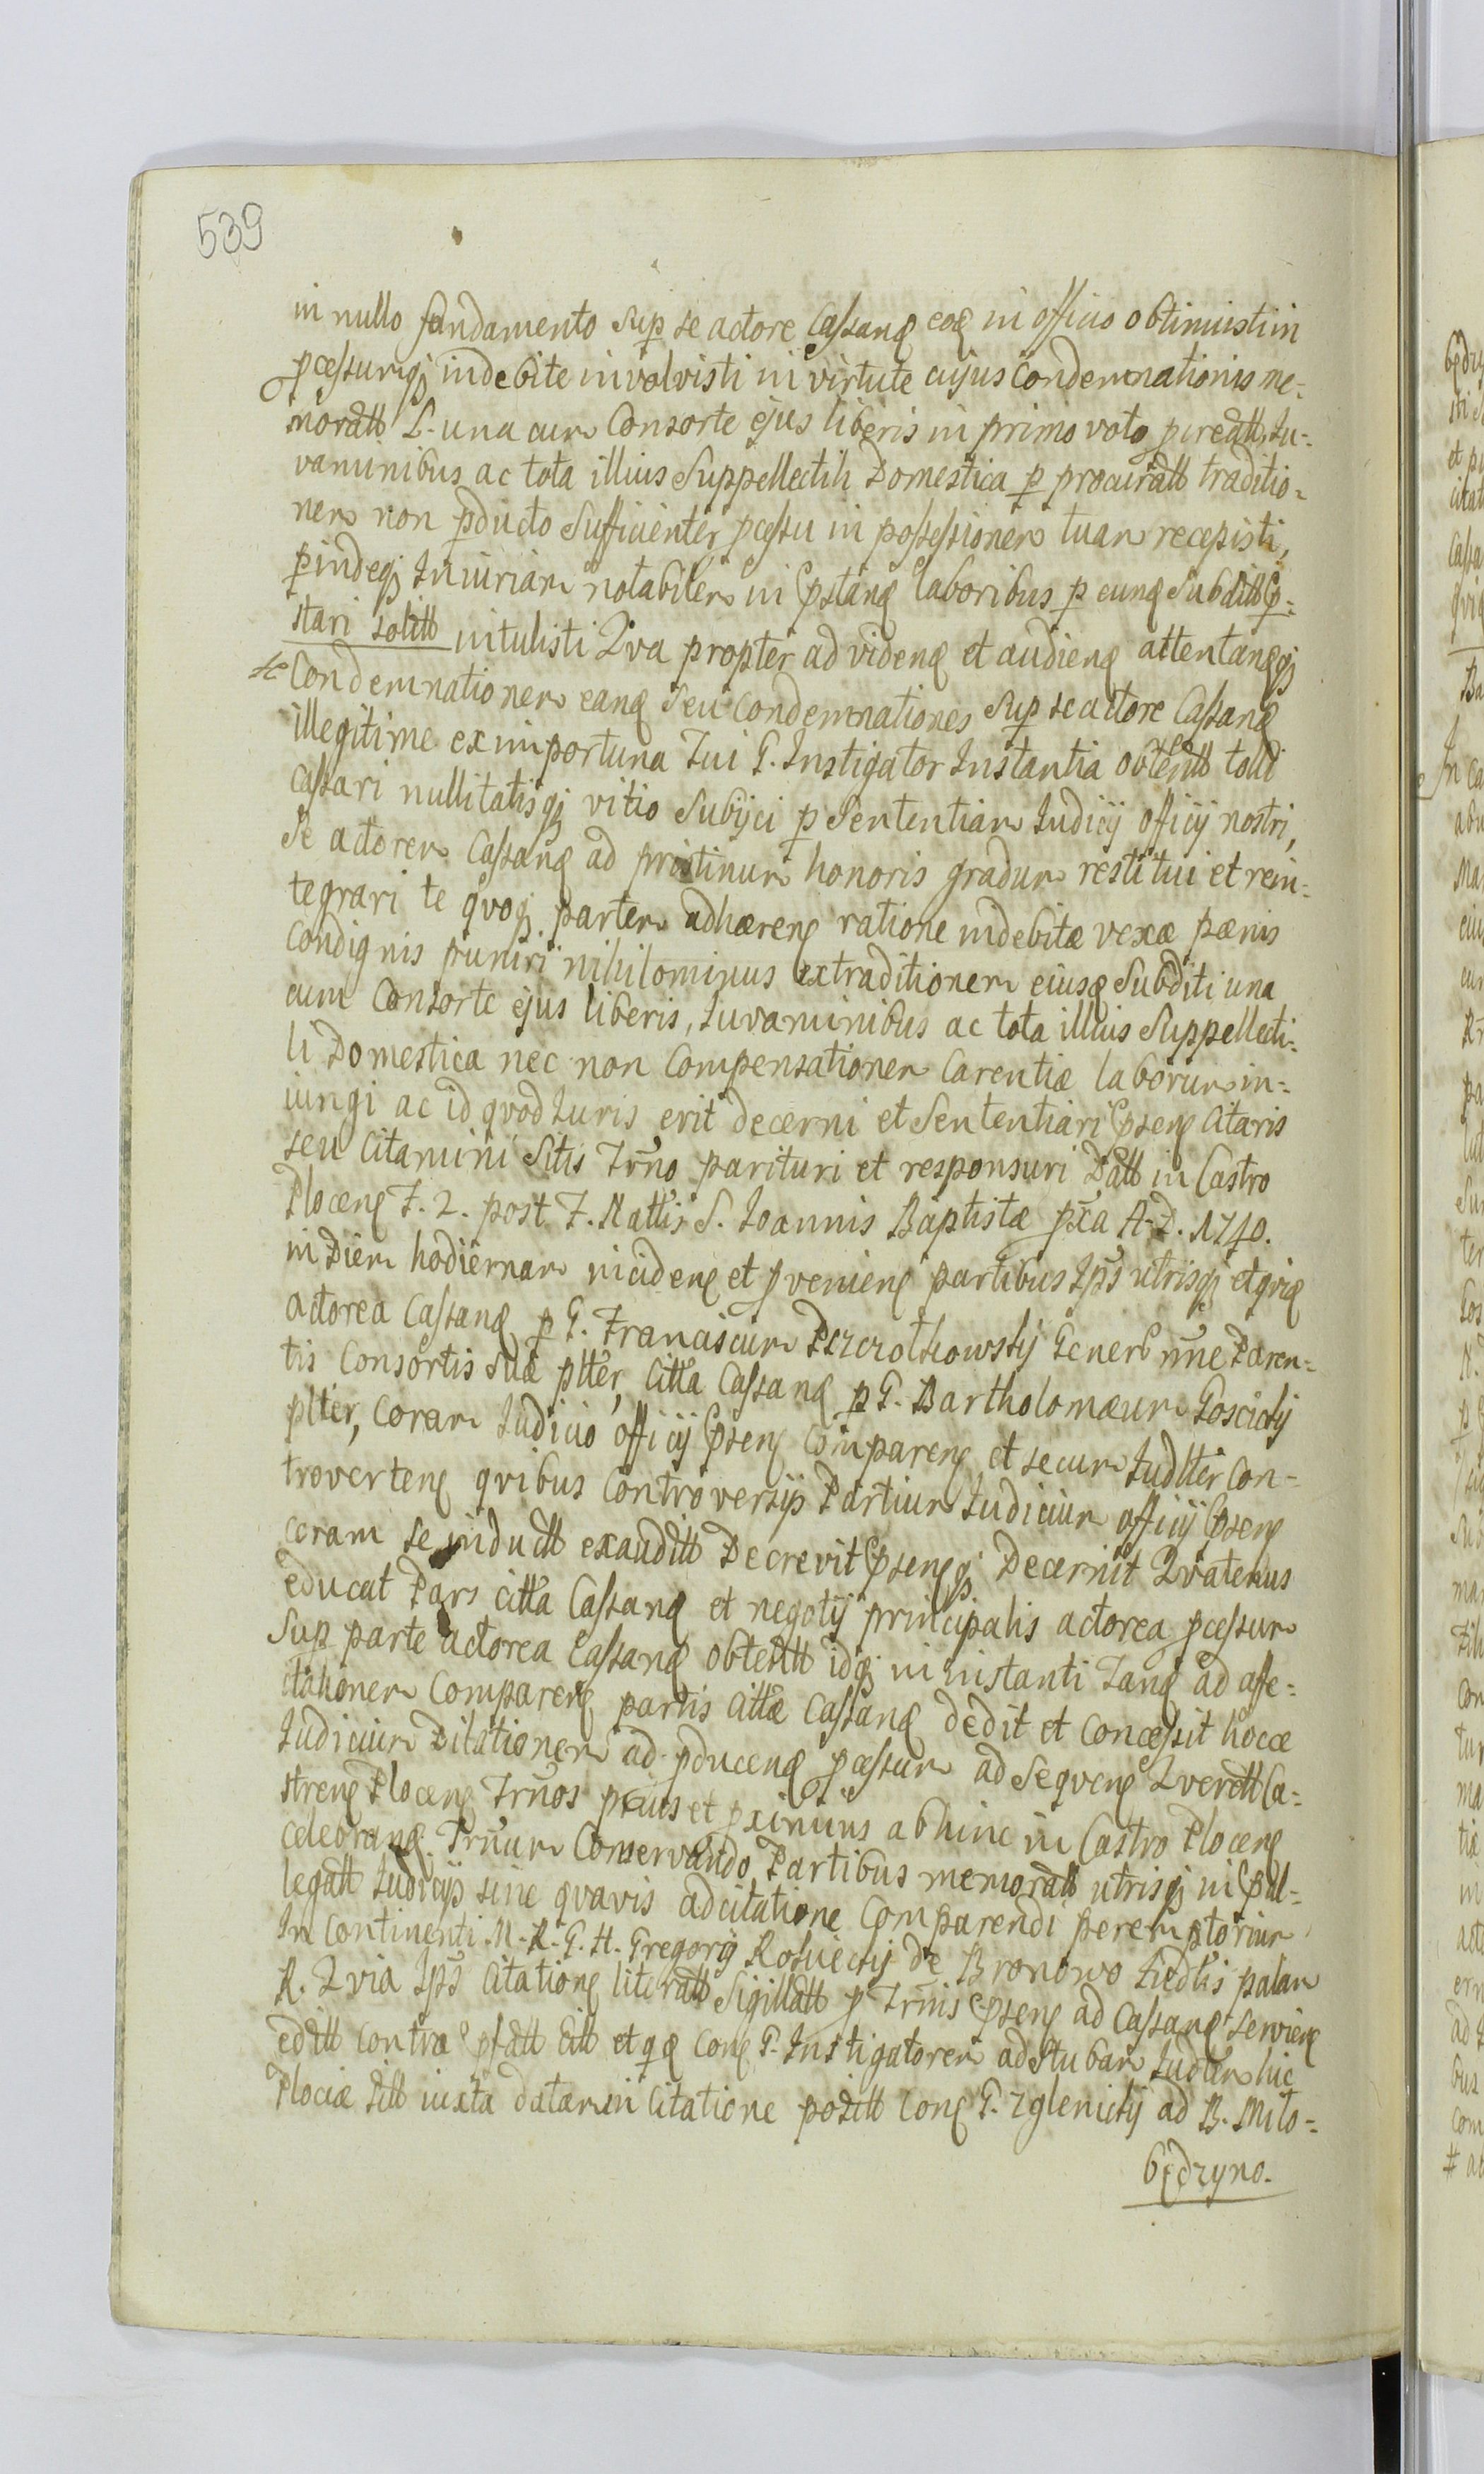 539
in nullo fundamento sup se actore Cassanq eoq in officio obtinuistiin
pcessumqȝ indebite involvisti in virtute cujus Condemnationis me=
moratt L. una cum Consorte ejus liberis in primo voto pcreatt, Iu=
vaminibus ac tota illius Suppellectili Domestica p procuratt traditio=
nem non pducto Sufficienter pcessu in possessionem tuam recepisti,
pindeqȝ Iniuriam notabilem in Pstanq laboribus p eunq Subditt P=
stari solitt intulisti Qva propter ad videnq et audienq attentanqqȝ
Condemnationem eanq seu Condemnationes sup se actore Cassanq
illegitime ex importuna Tui G. Instigator Instantia obtentt tolli
Cassari nullitatisqȝ vitio Subijci p Sententiam Iudicij officij nostri,
Se actorem Cassanq ad pristinum honoris gradum restitui et rein=
tegrari te qvoqȝ partem adhærenq ratione indebitæ vexæ pænis
Condignis puniri nihilominus extraditionem eiusq Subditi una
cum Consorte ejus liberis, Iuvaminibus ac tota illius Suppellecti=
li Domestica nec non Compensationem Carentiæ laborum in=
iungi ac id qvod Iuris erit decerni et Sententiari Psenq Citaris
seu Citamini Sitis Trno parituri et responsuri Datt in Castro
Plocenq F. 2. post F. Nattis S. Ioannis Baptistæ pxa A. D. 1740.
in Diem hodiernam incidenq et pvenienq partibus Ips utrisqȝ et qviq
actorea Cassanq p G. Franciscum Generb nne Paren=
tis Consortis suæ plter, Citta Cassanq p G. Bartholomæum Goscicky
plter, Coram Iudicio officij Psenq Comparenq et secum Iudlter Con=
trovertenq qvibus Controversijs Partium Iudicium officij Psenq
Coram se inductt exauditt Decrevit Psenqqȝ Decernit Qvatenus
educat Pars citta Cassanq et negotij principalis actorea pcessum
Sup parte actorea Cassanq obtentt idqȝ in instanti Tanq ad affe=
ctationem Comparenq partis cittæ Cassanq dedit et Concessit hocce
Iudicium Dilationem ad pducenq pcessum ad Seqvenq Qverett Ca=
strenq Plocenq Trnos pnius et pximius abhinc in Castro Plocenq
celebranq. Trnum Conservando Partibus memoratt utrisqȝ in Pal=
legatt Iudicijs sine qvavis adcitatione Comparendi peremptorium
In Continenti M. R. G. H. Gregorij de Bronowo palam
R. Qvia Ips Citationq literatt Sigillatt p Trnis Psenq ad Cassanq servienq
editt Contra pfatt Citt et qq Conq G. Instigatorem ad Stubam Iudlem hic
Plociæ sitt iuxta datam in Citatione positt Conq G. Zglenicky ad B. Milo=
będzyno.